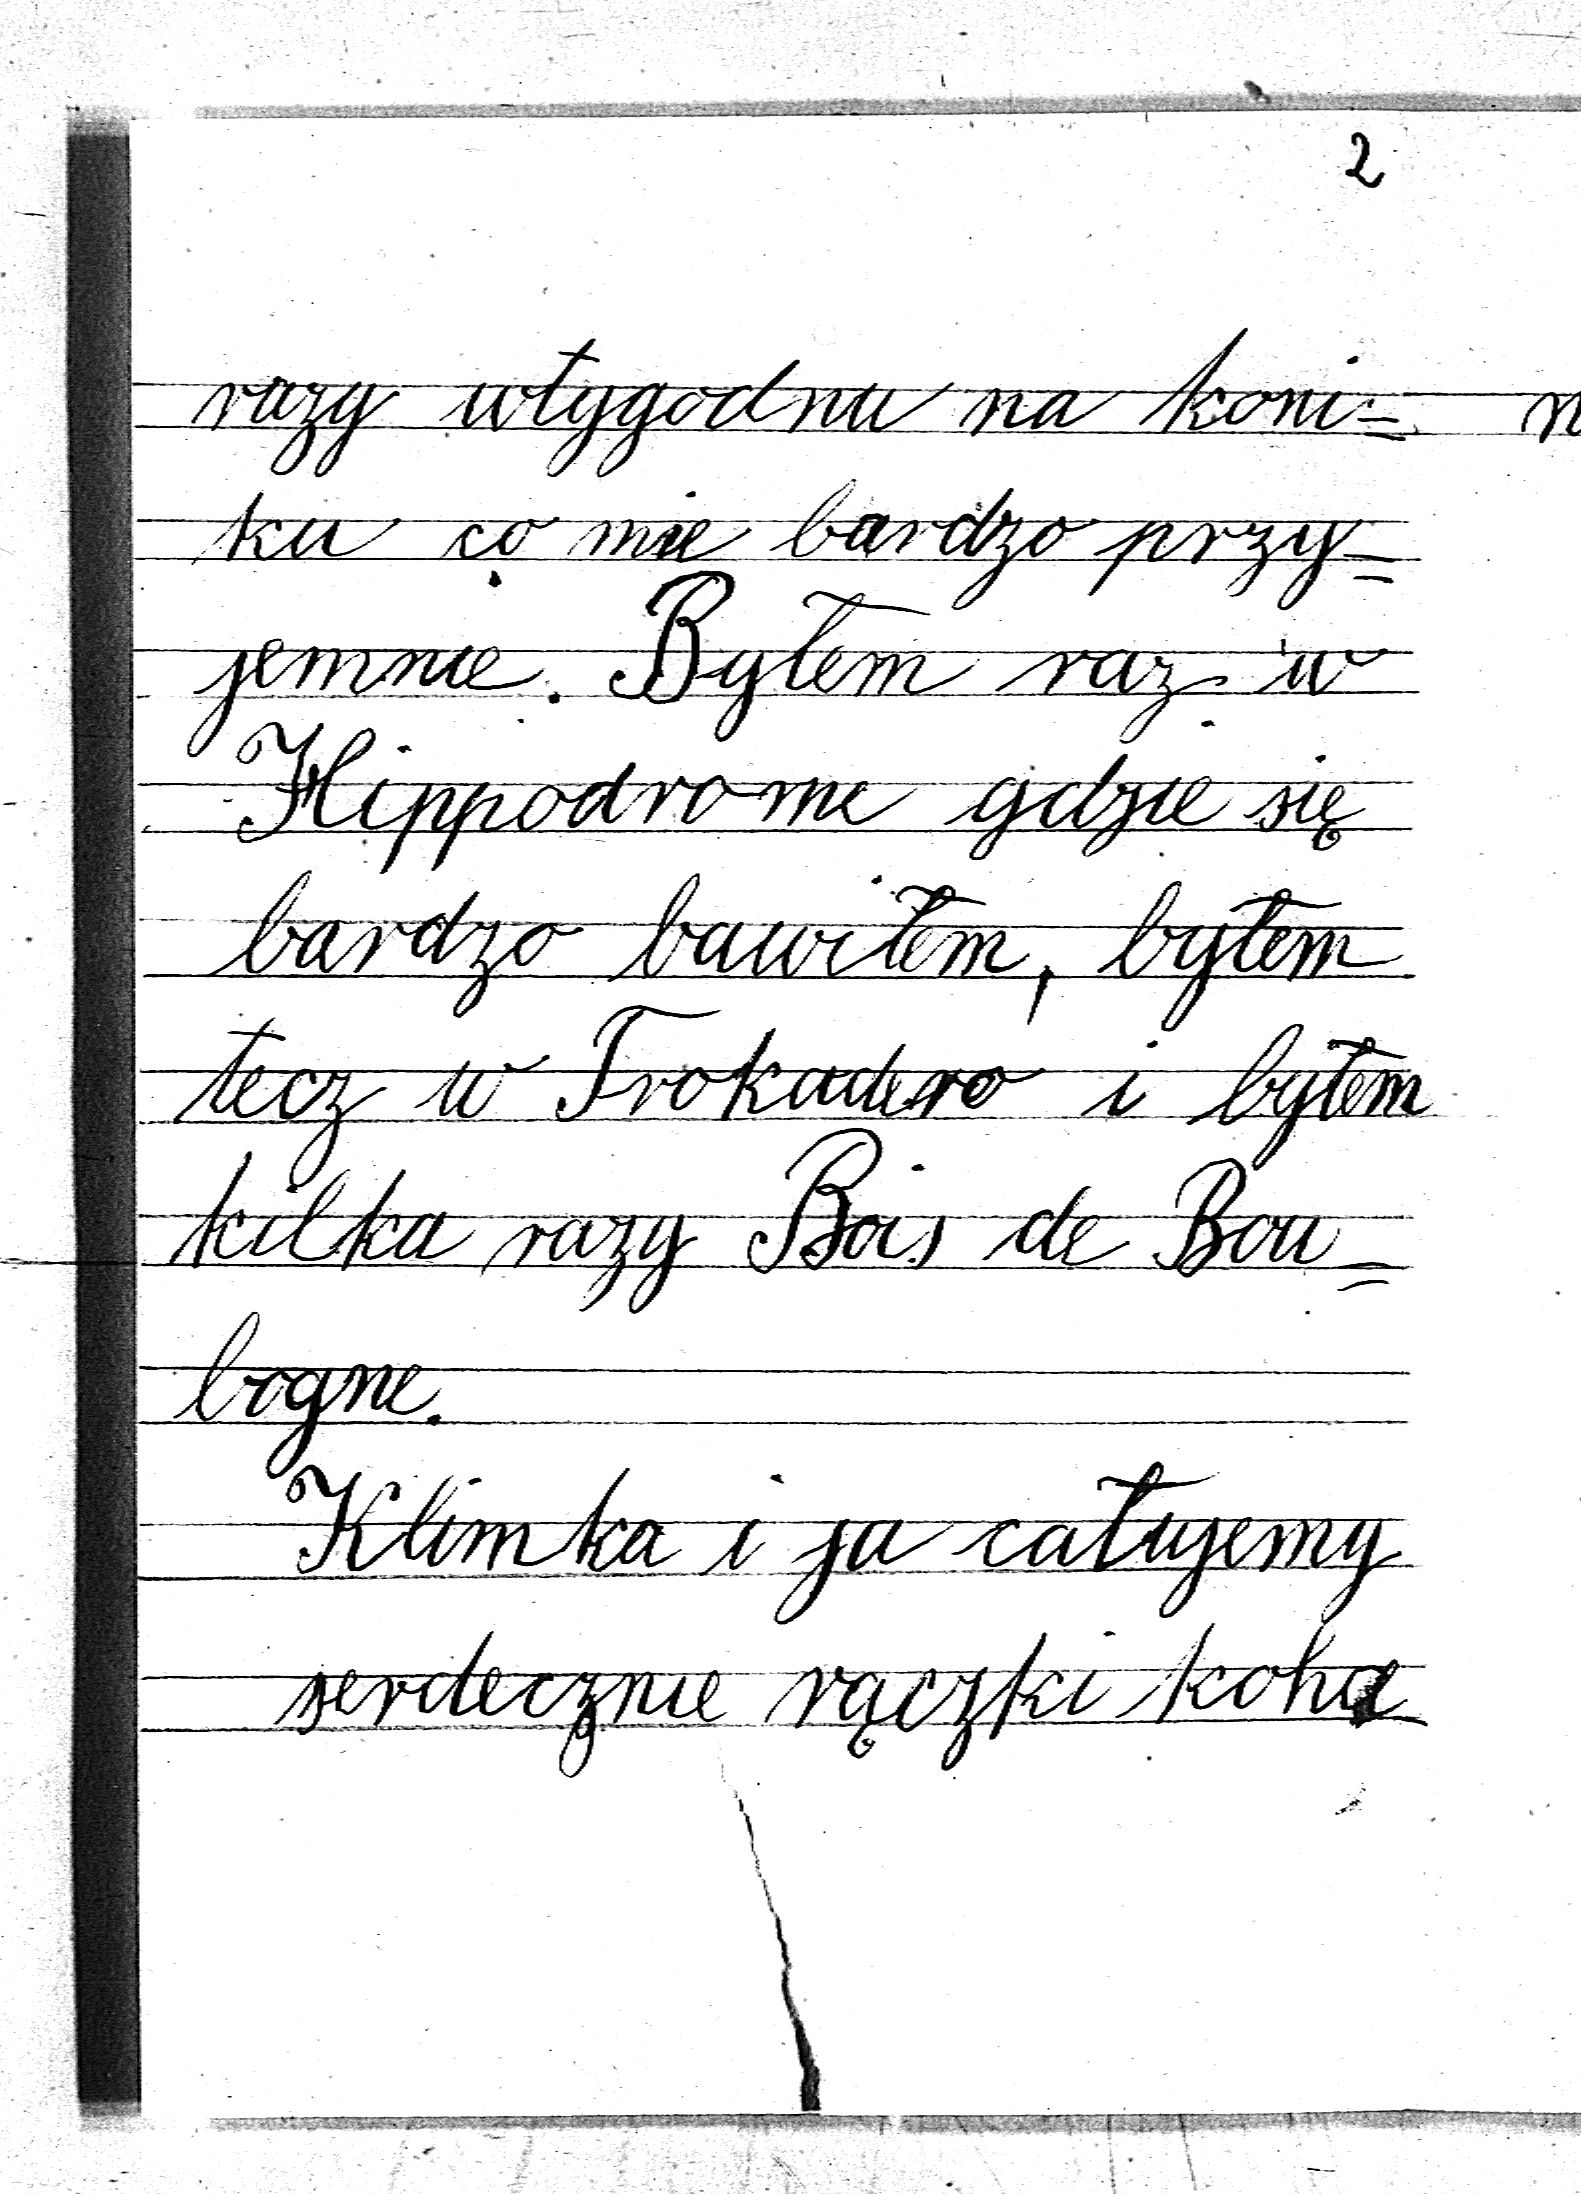 2
razy wtygodnu na koni=
ku co mie bardzo przy=
jemnie. Byłem raz w
Hippodrome gdzie się
bardzo bawiłem, byłem
tecz w Trokadero i byłem
kilka razy Bois de Bou=
logne.
Klimka i ja całujemy
serdecznie rączki koha